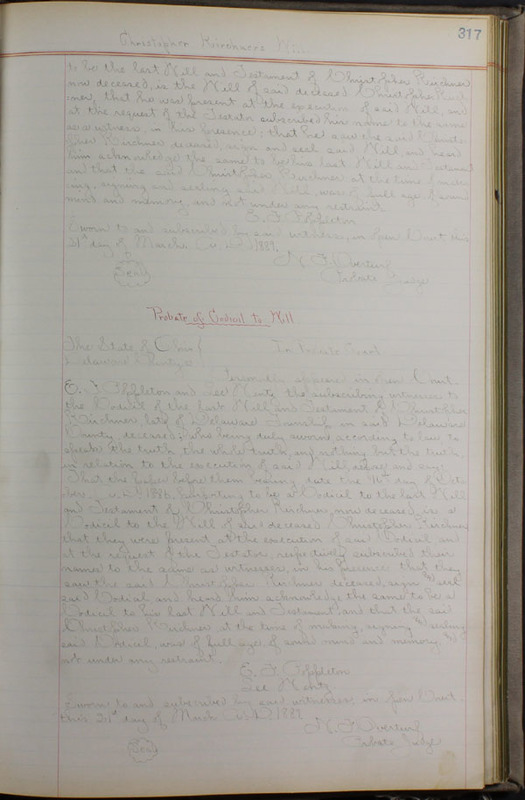 317
Christopher Kirchners Will
to be the last Will and Testament of Christopher Kirchner
now deceased, is the Will of said deceased Christopher Kirch
ner, that he was present at the execution of said Will, and
at the request of the Testator subscribed his name to the same
as a witness, in his presence; that he saw the said Christo
pher Kirchner, deceased, sign and seal said Will, and heard
him acknowledge the same to be his last Will and Testament
and that the said Christopher Kirchner at the time of mak
ing, signing and sealing said Will, was of full age of sound
mind and memory, and not under any restraint.
Sworn to and subscribed by said witness, in open Court this
21st day of March A. D. 1889.
Probate Judge
Seal
Probate of Codicil to Will
The State of Ohio
Delaware County ss
In Probate Court
Personally appeared in open Court
the subscribing witnesses to
the Codicil of the last Will and Testament of Christopher
Kirchner, late of Delaware Township in said Delaware
County, deceased, who being duly sworn according to law to
speak the truth the whole truth, and nothing but the truth
in relation to the execution of said Will, depose and say:
That the paper before them bearing date the 10th day of Octo
ber A. D. 1886, purporting to be a Codicil to the last Will
and Testament of Christopher Kirchner, now deceased, is a
Codicil to the Will of said deceased Christopher Kirchner
that they were present at the execution of said Codicil, and
at the request of the Testator, respectively subscribed their
names to the same as witnesses, in his presence that they
saw the said Christopher Kirchner deceased, sign and seal
said Codicil and heard him acknowledge the same to be a
Codicil to his last Will and Testament, and that the said
Christopher Kirchner at the time of making, signing and sealing
said Codicil, was of full age of sound mind and memory, and
not under any restraint.
Sworn to and subscribed by said witnesses in open Court
this 21st day of March A. D. 1889
Probate Judge
Seal